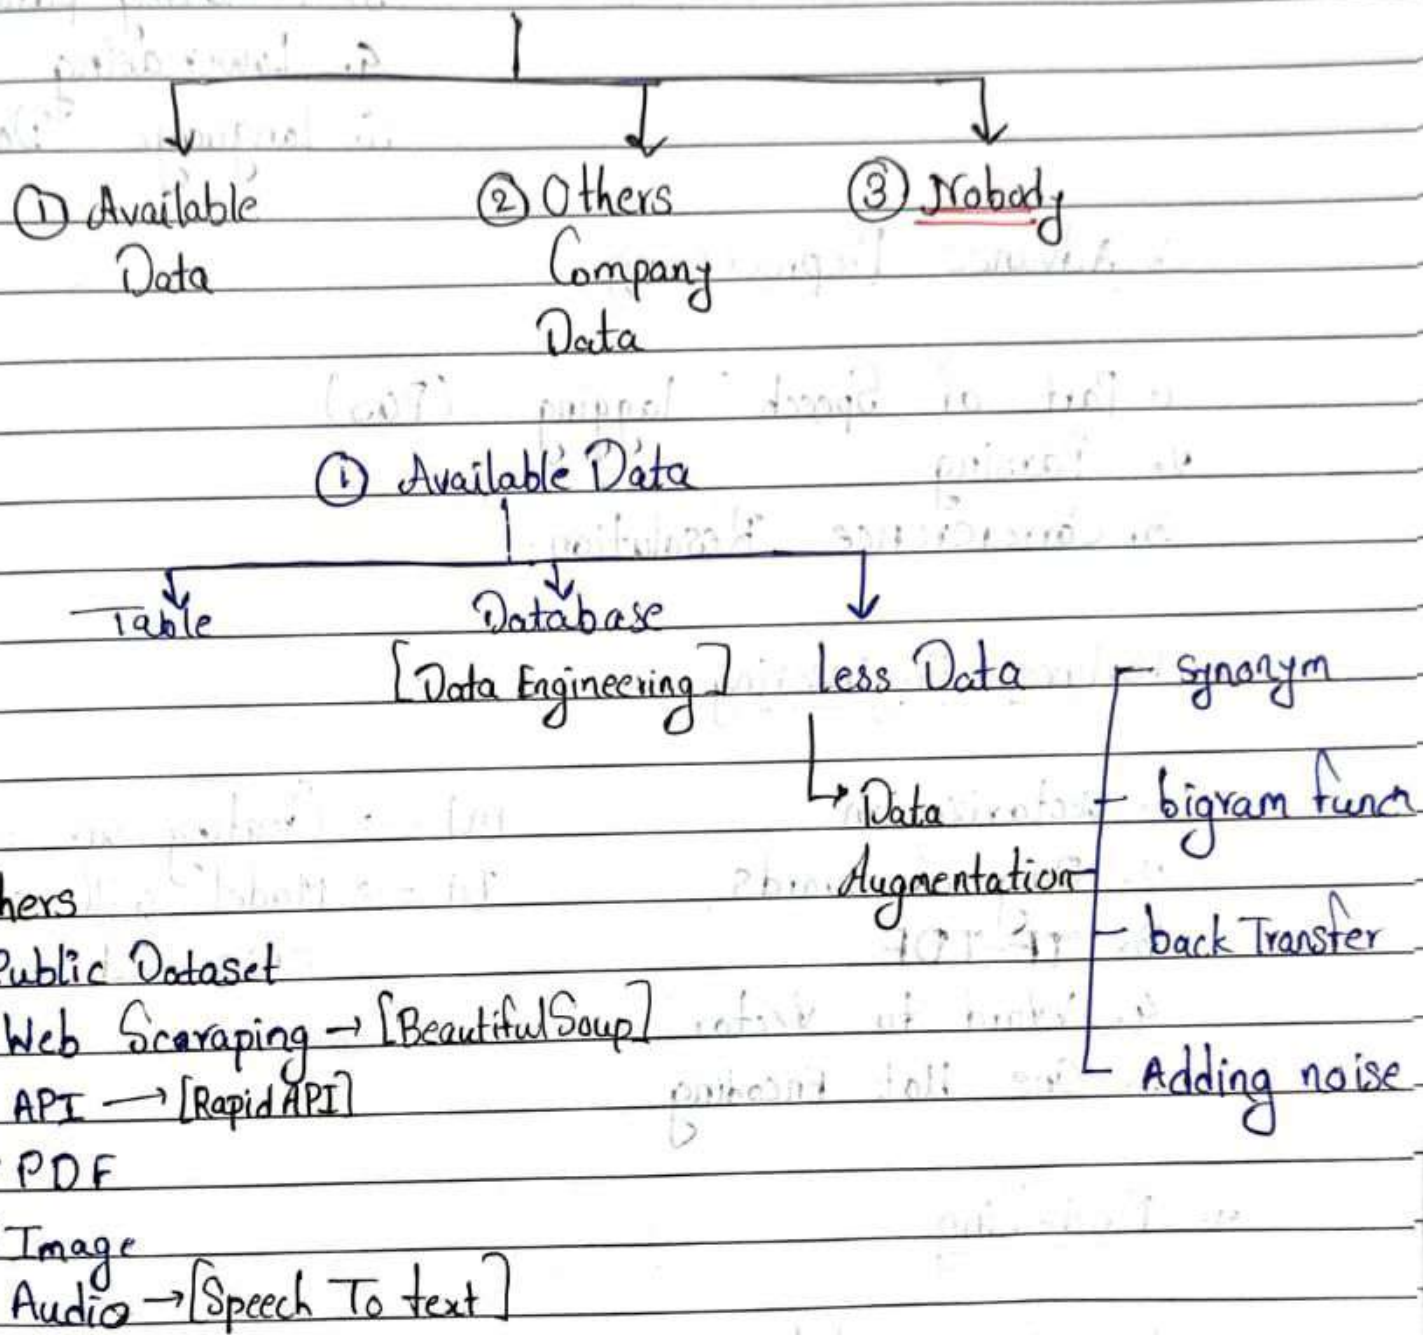 ① Available Data
② Others Company Data
③ Nobody
① Available Data
Table
Database
[Data Engineering]
less Data
Data Augmentation
synonym
bigram
back Transfer
Adding noise
hers
Public Dataset
Web Scaraping → [BeautifulSoup]
API → [Rapid API]
PDF
Image
Audio → [Speech To text]